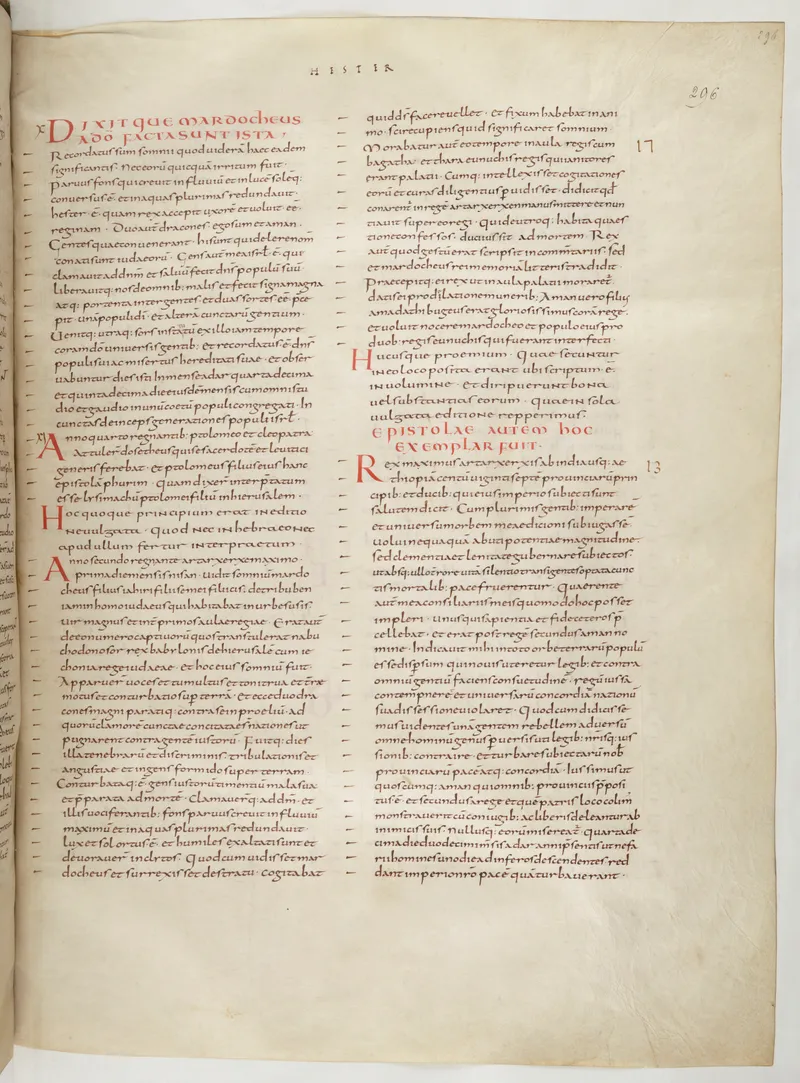 HESTER
296
296
X DIXITQUE MARDOCHEUS
A DO FACTA SUNT ISTA;
Recordatus sum somnii quod uiderā haec eadem
significantis. Nec eorū quicquā irritum fuit.
paruus fons qui creuit influuiū et in lucē solēq;
conuersus ē. et in aquas plurimas redundauit.
hester ē. quam rex accepit uxorē et uoluit ēē
reginam. Duo autē dracones. ego sum et aman.
Gentes quae conuenerant. hi sunt qui delere nomen
conati sunt iudaeorū. Gens autē mea isrł ē. quae
clamauit ad dnm̄ et saluū fecit dns populū suū
liberauitq; nos de omnib; malis et fecit signa magna
atq; portenta inter gentes. et duas sortes ēē p̄ce
pit. unā populi dī et alterā cunctarū gentium.
Uenitq; utraq; sors in statutū ex illo iam tempore
coram dō uniuersis gentib; et recordatus ē dns
populi sui ac misertus hereditatis suae. et obser
uabuntur dies isti In mense adar quarta decima
et quinta decima die eiusdē mensis cum omni stu
dio et gaudio in unū coetū populi congregati. In
cunctas deinceps generationes populi isrł.
XI Anno quarto regnantib; ptolomeo et cleopatra
attuler dosetheus qui se sacerdotē et leuitici
generis ferebat. et ptolomeus filius eius hanc
epistolā phurim. quam dixer̄ interp̄tatum
esse lysimachū ptolomei filiū inhierusalem.
Hoc quoque principium erat in editio
ne uulgata. quod nec in hebraeo nec
apud ullum fertur interpraetum.
Anno secundo regnante artarxerxe maximo.
prima die mensis nisan. uidit somniū mardo
cheus filius iairi filii semei filii cis. de tribu ben
iamin homo iudaeus qui habitabat in urbe susis.
Uir magnus et int̄ primos aulae regiae. Erat autē
de eo numero captiuorū quos transtulerat nabu
chodonosor rex babylonis dehierusalē cum ie
chonia rege iudaeae. et hoc eius somniū fuit.
Apparuer̄ uoces et tumultus et tonitrua. et trae
motus et conturbatio sup̄ terrā. et ecce duo dra
cones magni paratiq; contra se in proeliū. ad
quorū clamorē cunctae concitatae s̄ nationes ut
pugnarent contra gentē iustorū. Fuitq; dies
illa tenebrarū et discriminis. tribulationis et
angustiae. et ingens formido super terram.
Conturbataq; ē gens iustorū timentiū mala sua
et p̄parata ad mortē. Clamauer̄q; ad dm̄. et
illis uociferantib; fons paruus creuit in fluuiū
maximū et in aquas plurimas redundauit.
lux et sol ortus ē. et humiles exaltati sunt et
deuorauer̄ inclytos. Quod cum uidisset mar
docheus et surrexisset de stratu. cogitabat
quid ds̄ facere uellet. et fixum habebat in ani
mo. scire cupiens quid significaret somnium.
Morabatur autē eo tempore in aula regis cum
bagatha. et thara eunuchis regis qui ianitores
erant palatii. Cumq; intellexisset cogitationes
eorū et curas diligentius p̄uidisset. didicit qđ
conarent̄ in regē artarxerxen manus mittere et nun
tiauit super eo regi. qui de utroq; habita quaes
tione confessos. duci iussit ad mortem. Rex
autē quod gestū erat scripsit in comm̄tariis. sed
et mardocheus rei memoriā litteris tradidit.
Praecepitq; ei rex ut in aula palatii moraret̄
datis ei pro dilatione munerib; Aman uero filius
amadathi bugeus erat gloriosissimus corā rege.
et uoluit nocere mardocheo et populo eius pro
duob; regis eunuchis qui fuerant interfecti.
Hucusque proemium. Quae secuntur
in eo loco posita erant ubi scriptum ē.
in uolumine. et diripuerunt bona
uel substantias eorum. quae in sola
uulgata editione repperimus.
EPISTOLAE AUTEM HOC
EXEMPLAR FUIT.
17
13
Rex maximus artarxerxis ab india usq; ae
thiopiā centū uiginti septē prouinciarū prin
cipib; et ducib; qui eius imperio subiecti sunt.
salutem dicit. Cum plurimis gentib; imperare
et uniuersum orbem meae dicioni subiugasse.
uolui nequaquā abuti potentiae magnitudine.
sed clementia et lenitate gubernare subiectos.
ut absq; ullo terrore uitā silentio transigentes optata cunc
tis mortalib; pace fruerentur. Quaerente
autē me a consiliariis meis quomodo hoc posset
impleri. Unus qui sapientia et fide ceteros p̄
cellebat. et erat post regē secundus aman no
mine. Indicauit mihi in toto orbe terrarū populū
esse dispersum qui nouis uteretur legib; et contra
omniū gentiū faciens consuetudinē. regū iussa
contemneret et uniuersarū concordiā nationū
sua dissensione uiolaret. Quod cum didicisse
mus uidentes unā gentem rebellem aduersū
omne hominū genus peruersis uti legib; nr̄isq; ius
sionib; contraire. et turbare subiectarū nob̄
prouinciarū pacē atq; concordiā. Iussimus ut
quoscūq; aman qui omnib; prouinciis p̄posi
tus ē. et secundus a rege et quē patris loco colim̄
monstrauerit cū coniugib; ac liberis deleantur ab
inimicis suis. nullusq; eorū misereat̄. quarta de
cima die duodecimi m̄sis adar anni p̄sentis ut nefa
rii homines uno die ad inferos descendentes red
dant imperio nr̄o pacē quā turbauerant.